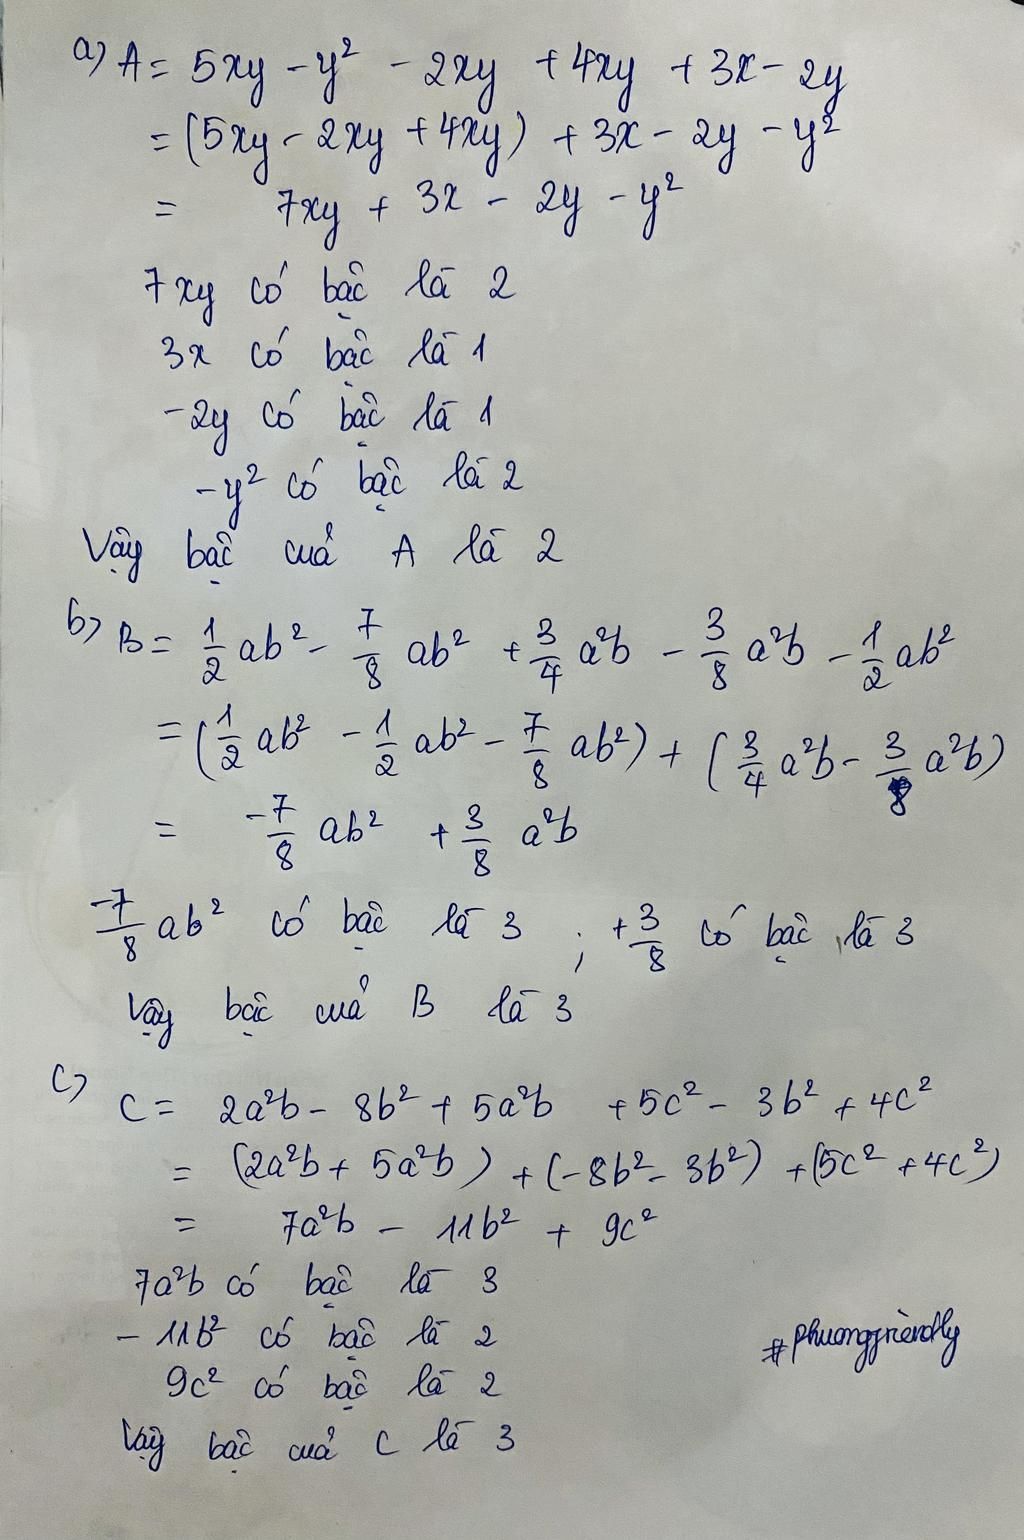 a) A = 5xy - y² - 2xy + 4xy + 3x - 2y
= (5xy - 2xy + 4xy) + 3x - 2y - y²
= 7xy + 3x - 2y - y²
7xy có bậc là 2
3x có bậc là 1
-2y có bậc là 1
-y² có bậc là 2
Vậy bậc của A là 2
b) B = 1/2 ab² - 7/8 ab² + 3/4 a²b - 3/8 a²b - 1/2 ab²
= (1/2 ab² - 1/2 ab² - 7/8 ab²) + (3/4 a²b - 3/8 a²b)
= -7/8 ab² + 3/8 a²b
-7/8 ab² có bậc là 3 ; +3/8 có bậc là 3
Vậy bậc của B là 3
c) C = 2a²b - 8b² + 5a²b + 5c² - 3b² + 4c²
= (2a²b + 5a²b) + (-8b² - 3b²) + (5c² + 4c²)
= 7a²b - 11b² + 9c²
7a²b có bậc là 3
- 11b² có bậc là 2
#phuongfriendly
9c² có bậc là 2
Vậy bậc của C là 3